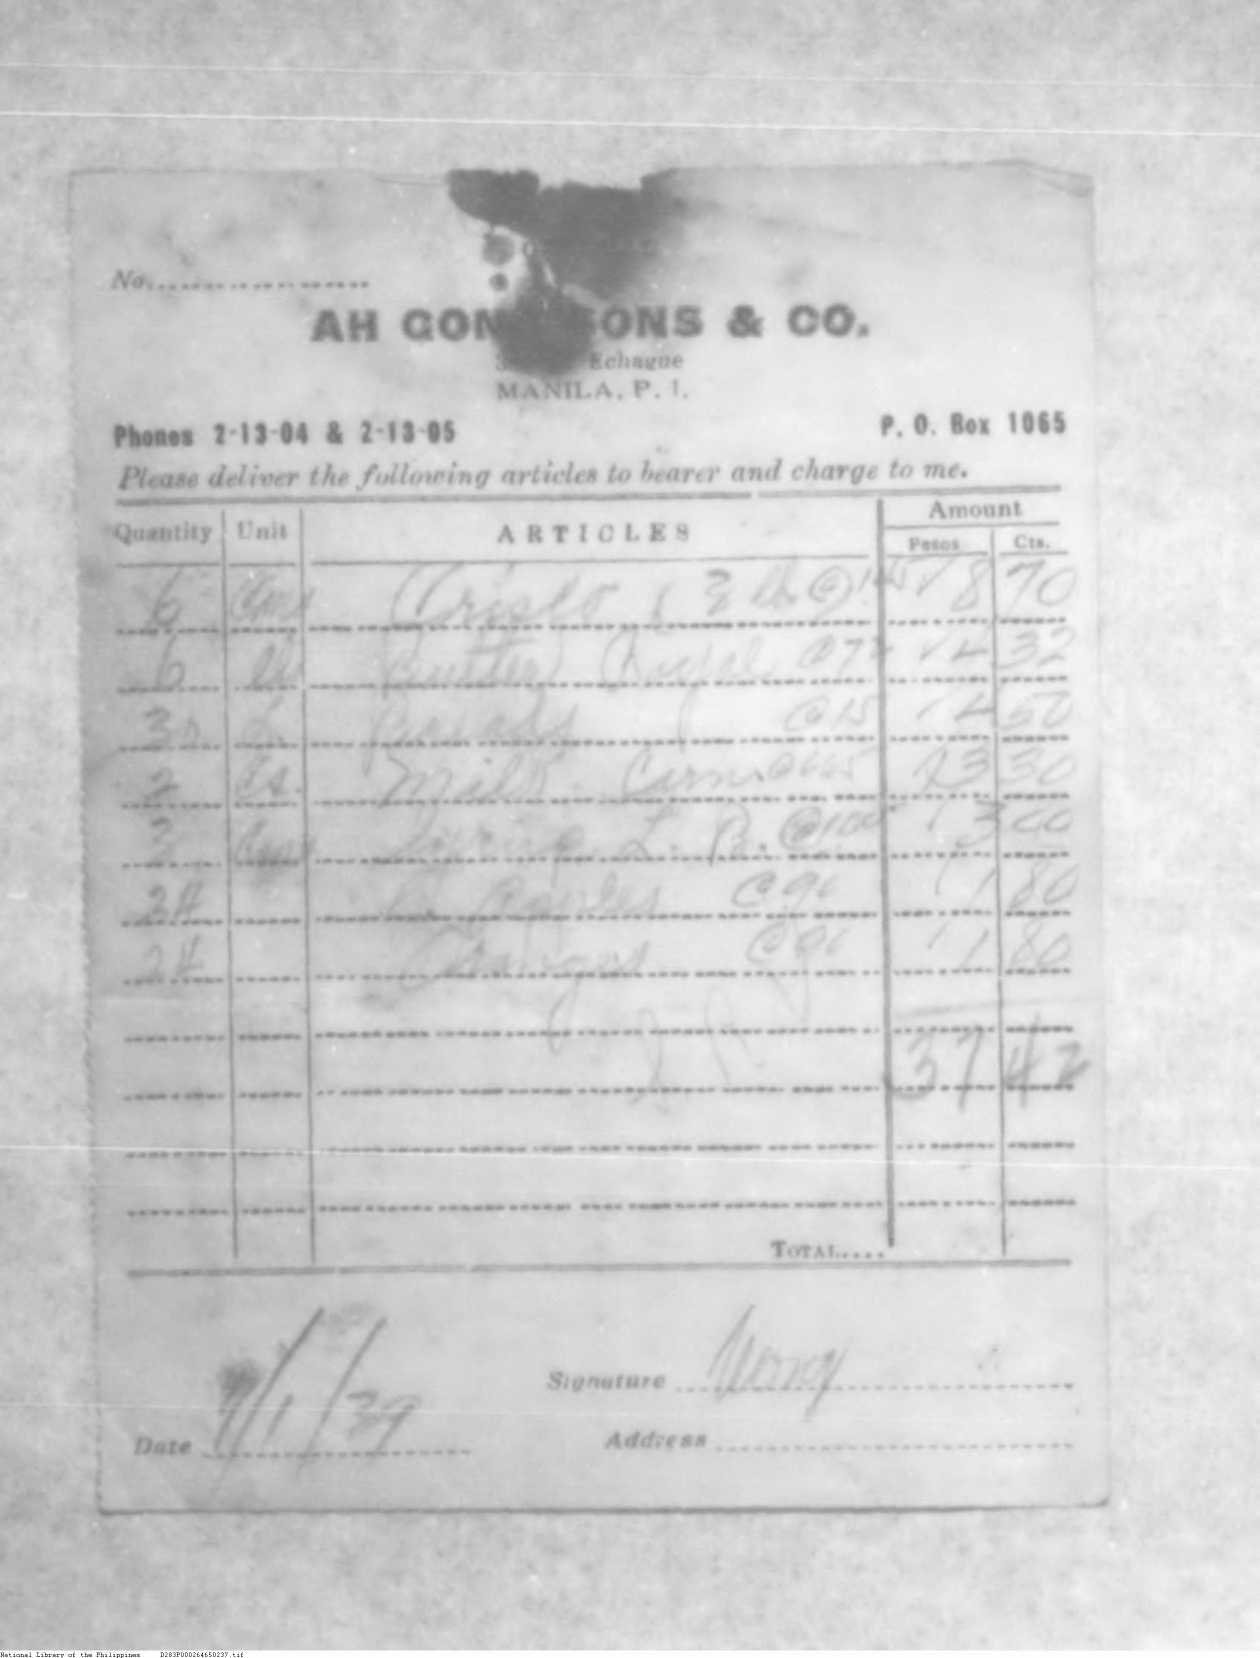 No.
AH GON SONS & CO.
Echague
MANILA, P. I.
Phones 2-13-04 & 2-13-05 P. O. Box 1065
Please deliver the following articles to bearer and charge to me.
Quantity Unit ARTICLES Amount
Pesos Cts.
6 Cans Crisco 3 lb @ 1.45 8 70
6 lb Butter @ 72 4 32
30 @ 15 4 50
2 Cs. Milk Carn. @ 665 13 30
3 L. P. @ 100 3 00
24 Apples @ 90 1 80
24 Oranges @ 90 1 80
37 42
TOTAL....
Signature
Date /1/39 Address
National Library of the Philippines D283P000264650237.tif